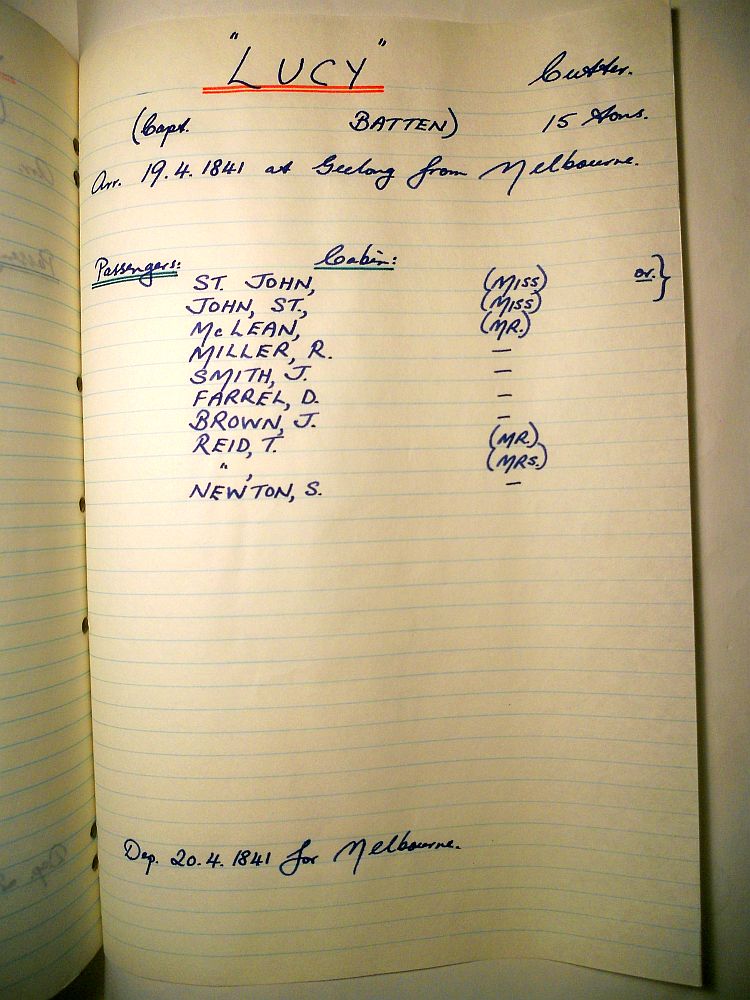 "LUCY" Cutter.
(Capt. BATTEN) 15 tons.
Arr. 19.4.1841 at Geelong from Melbourne.
Passengers: Cabin:
ST. JOHN, (MISS) or. }
JOHN, ST., (MISS)
McLEAN, (MR.)
MILLER, R. —
SMITH, J. —
FARREL, D. —
BROWN, J. —
REID, T. (MR.)
" , (MRS.)
NEWTON, S. —
Dep. 20.4.1841 for Melbourne.